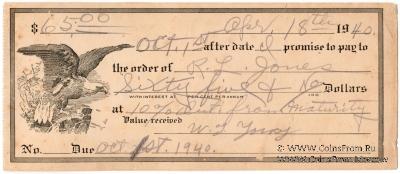 $65.00 Apr. 18th 1940.
Oct. 1st after date I promise to pay to
the order of R. L. Jones
Sixty five & No Dollars
WITH INTEREST AT PER CENT PER ANNUM 100
at 10% Int from maturity
Value received
W. T. Yowry
No. Due Oct 1st. 1940.
© WWW.CoinsFrom.Ru